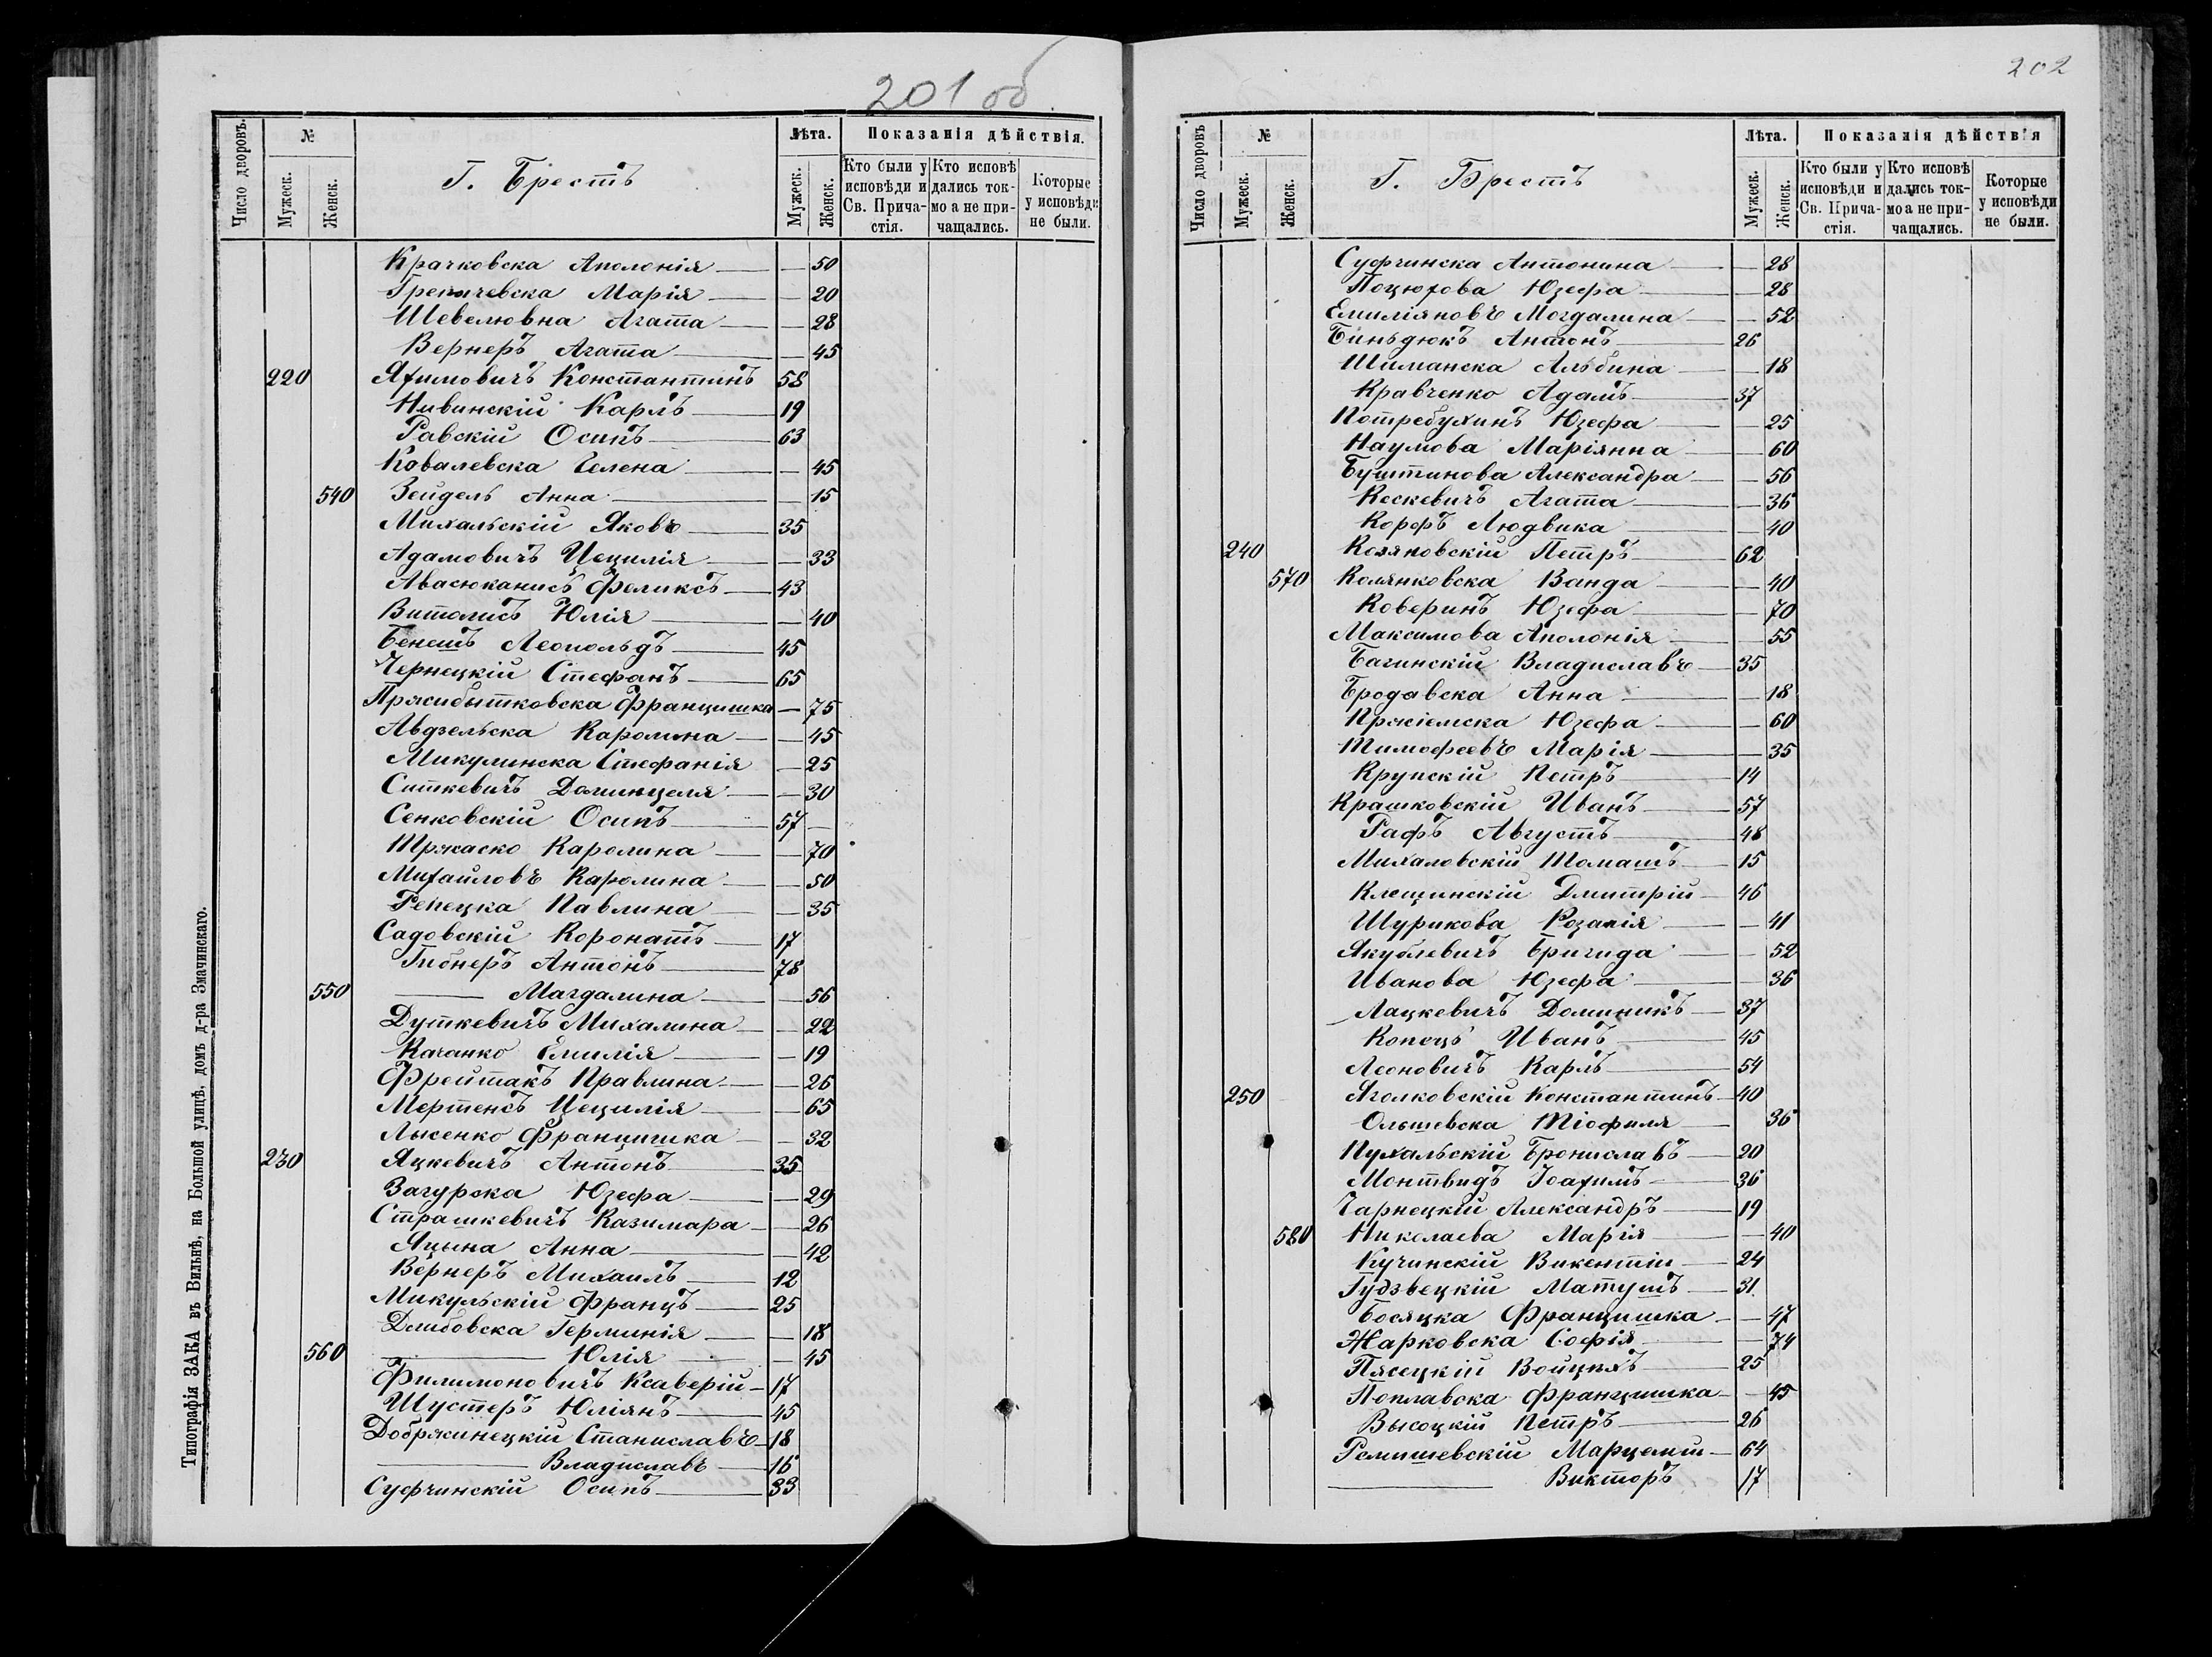 201 об
Число дворовъ.
№
Мужеск.
Женск.
Г. Брестъ
Лѣта.
Мужеск.
Женск.
Показанія дѣйствія.
Кто были у исповѣди и Св. Прича-стія.
Кто исповѣ дались ток-мо а не при-чащались.
Которые у исповѣди не были.
Крачковска Аполонія — — 50
Марія — — 20
Шевелювна Агата — — 28
Вернеръ Агата — — 45
220 Яхимовичъ Константинъ 58
Нивинскій Карлъ — 19
Равскій Осипъ — 63
Ковалевска Елена — — 45
540 Зейдель Анна — — 15
Михальскій Яковъ — 35
Адамовичъ Цецилія — — 33
Авасюканисъ Феликсъ — 43
Витолисъ Юлія — — 40
Бенешъ Леопольдъ — 45
Чернецкій Стефанъ — 65
Пржибытковска Францишка — 75
Авдзельска Каролина — — 45
Микулинска Стефанія — 25
Ситкевичъ Доминцеля — — 30
Сенковскій Осипъ — 57 —
Тржаско Каролина — — 70
Михайловъ Каролина — — 50
Репецка Павлина — — 35
Садовскій Коронатъ — 17
Гибнеръ Антонъ — 78
550 — Магдалина — — 56
Дуткевичъ Михалина — — 22
Качанко Емилія — — 19
Фрейтакъ Правлина — — 26
Мертенсъ Цецилія — — 65
Лысенко Францишка — — 32
230 Яцкевичъ Антонъ 35
Загурска Юзефа — — 29
Страшкевичъ Казимара — — 26
Яцына Анна — — 42
Вернеръ Михаилъ — 12
Микульскій Францъ — 25
Длибовска Герминія — — 18
560 — Юлія — — 45
Филимоновичъ Ксаверій — 17
Шустеръ Юліянъ — 45
Добржинецкій Станиславъ — 18
— Владиславъ — 16
Суфчинскій Осипъ — 33
Типографія ЗАКА въ Вильнѣ, на Большой улицѣ, домъ д-ра Змачинскаго.
202
Число дворовъ
№
Мужеск.
Женск.
Г. Брестъ
Лѣта.
Мужеск.
Женск.
Показанія дѣйствія
Кто были у исповѣди и Св. Прича-стія.
Кто исповѣ дались ток-мо а не при-чащались.
Которые у исповѣди не были.
Суфчинска Антонина — — 28
Поцюхова Юзефа — — 28
Емиліяновъ Могдалина — — 52
Биньдюкъ Антонъ — 26
Шиманска Альбина — — 18
Кравченко Адамъ — 37
Потребухинъ Юзефа — — 25
Наумова Маріянна — — 60
Буштинова Александра — — 56
Кескевичъ Агата — — 36
Корфъ Людвика — — 40
240 Козяновскій Петръ — 62
570 Колянковска Ванда — — 40
Коверинъ Юзефа — — 70
Максимова Аполонія — — 55
Багинскій Владиславъ — 35
Бродавска Анна — — 18
Пржіемска Юзефа — — 60
Тимофеевъ Марія — — 35
Крупскій Петръ — 14
Крашковскій Иванъ — 57
Рафъ Августъ — 48
Михаловскій Томашъ — 15
Клещинскій Дмитрій — 46
Шурикова Розалія — — 41
Якублевичъ Бригида — — 52
Иванова Юзефа — — 36
Лацкевичъ Доминикъ — 37
Копецъ Иванъ — 45
Леоновичъ Карлъ — 54
250 Яголковскій Константинъ — 40
Ольшевска Тіофиля — 36
Пухальскій Брониславъ — 20
Монтвидъ Іоахимъ — 36
Чарнецкій Александръ — 19
580 Николаева Марія — — 40
Кучинскій Викентій — 24
Гудзвецкій Матушъ — 31
Босяцка Францишка — — 47
Жарковска Софія — — 74
Пясецкій Войцехъ — 25
Поплавска Францишка — — 45
Высоцкій Петръ — 26
Ремишевскій Марцелій — 64
— Викторъ — 17